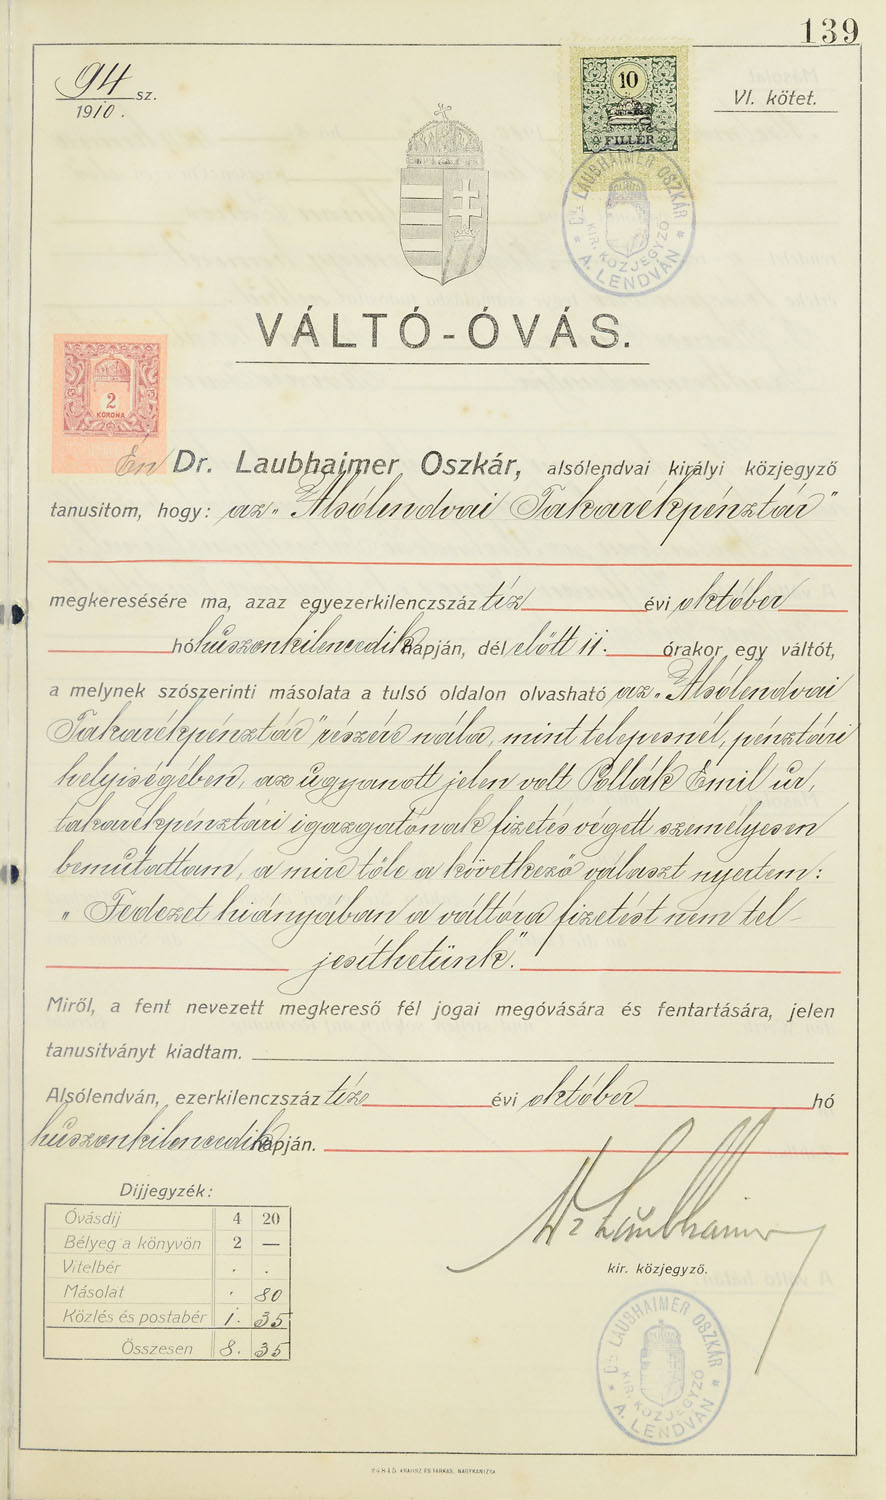 139
94 sz.
1910.
VI. kötet.
10
FILLÉR
Dr. LAUBHAIMER OSZKÁR
KIR. KÖZJEGYZŐ
* A. LENDVÁN *
VÁLTÓ-ÓVÁS.
2
KORONA
Én Dr. Laubhaimer Oszkár, alsólendvai királyi közjegyző
tanusitom, hogy: az „Alsólendvai Takarékpénztár”
megkeresésére ma, azaz egyezerkilenczszáz tíz évi október
hó huszonkilencedik napján, dél előtt 11. órakor egy váltót,
a melynek szószerinti másolata a tulsó oldalon olvasható az „Alsólendvai
Takarékpénztár” részére nála, mint telepesnél, pénztári
helyiségében, az ugyanott jelen volt Pollák Emil úr,
takarékpénztári igazgatónak fizetés végett személyesen
bemutattam, a mire tőle a következő választ nyertem:
„Fedezet hiányában a váltóra fizetést nem tel-
jesíthetünk.”
Miről, a fent nevezett megkereső fél jogai megóvására és fentartására, jelen
tanusitványt kiadtam.
Alsólendván, ezerkilenczszáz tíz évi október hó
huszonkilencedik napján.
Dijjegyzék:
Óvásdij 4 20
Bélyeg a könyvön 2 —
Vitelbér . .
Másolat . 80
Közlés és postabér 1. 35
Összesen 8. 35
Dr Laubhaimer
kir. közjegyző.
Dr. LAUBHAIMER OSZKÁR
KIR. KÖZJEGYZŐ
* A. LENDVÁN *
24815 KRAUSZ ÉS FARKAS, NAGYKANIZSA